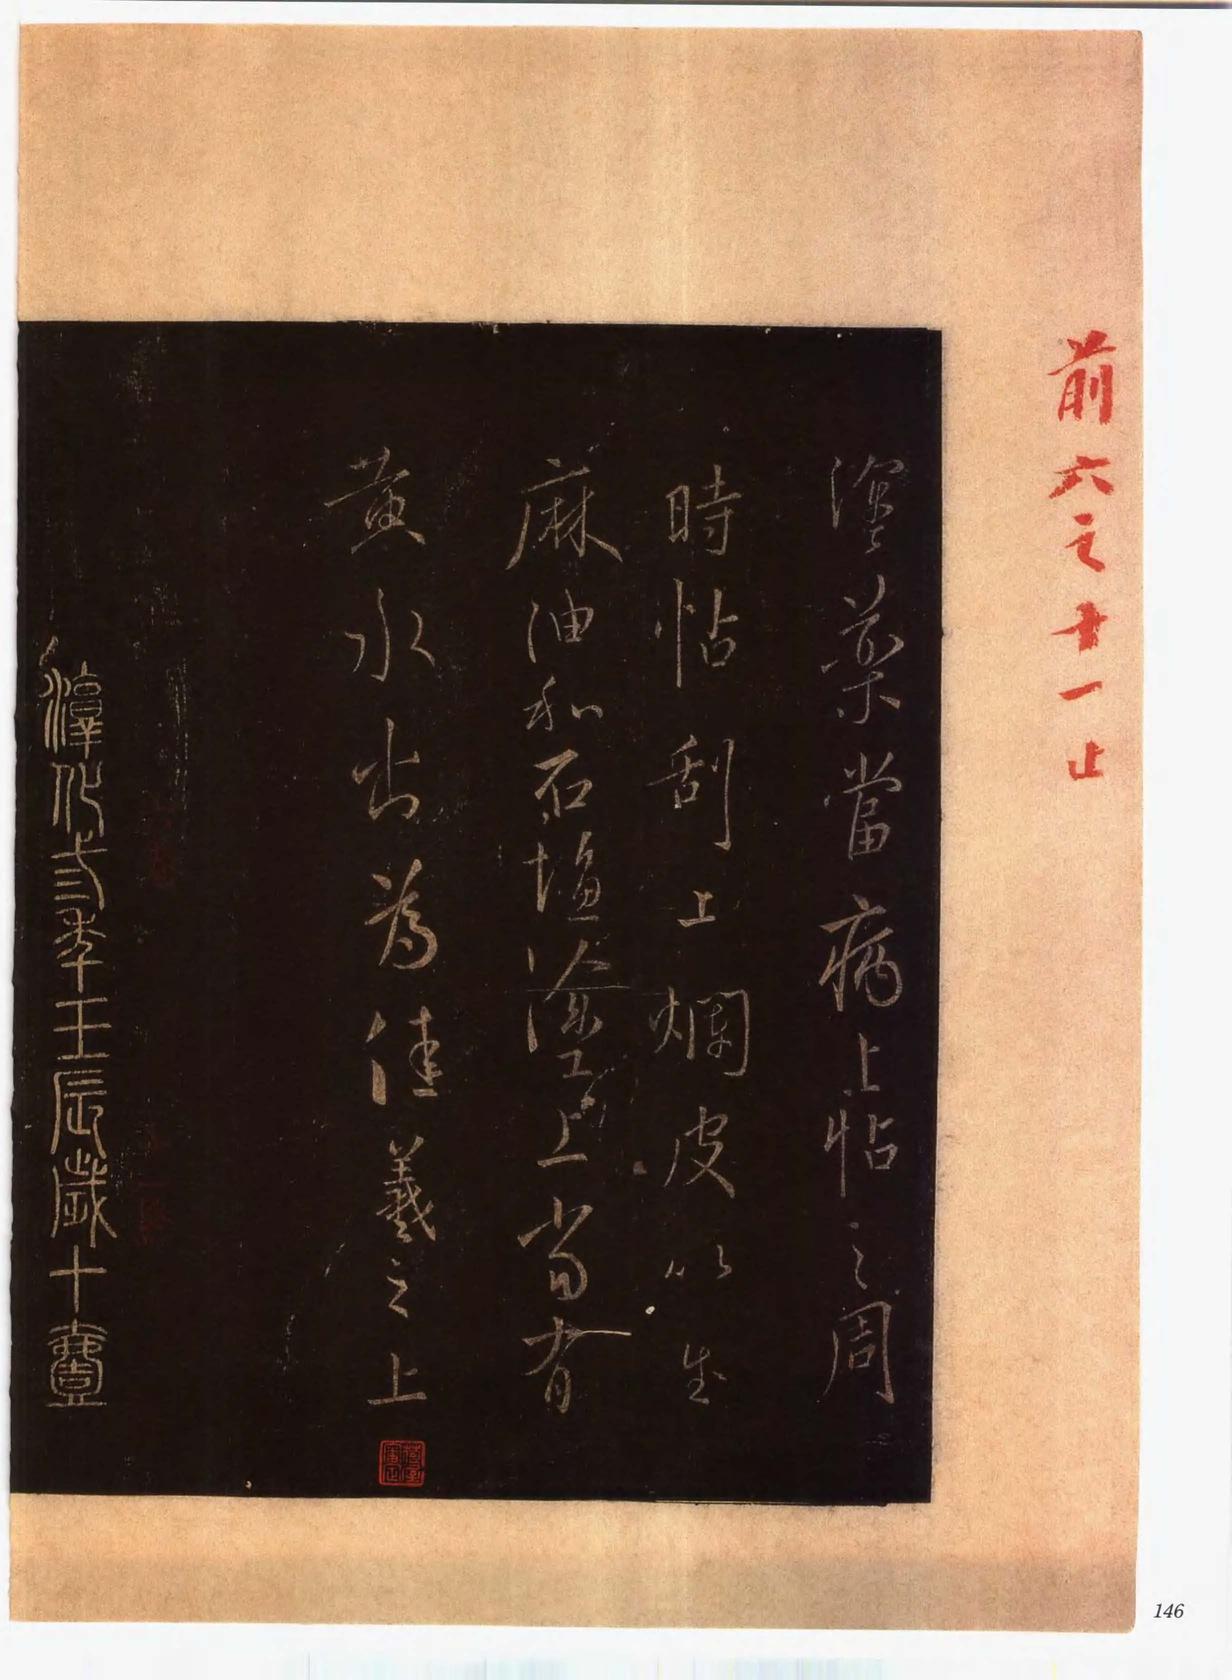 前六之十一止
藥當病上帖之周
時帖刮上爛皮以生
麻油和石塩塗上當有
黄水出為佳羲之上
淳化弎年壬辰歲十壹
146